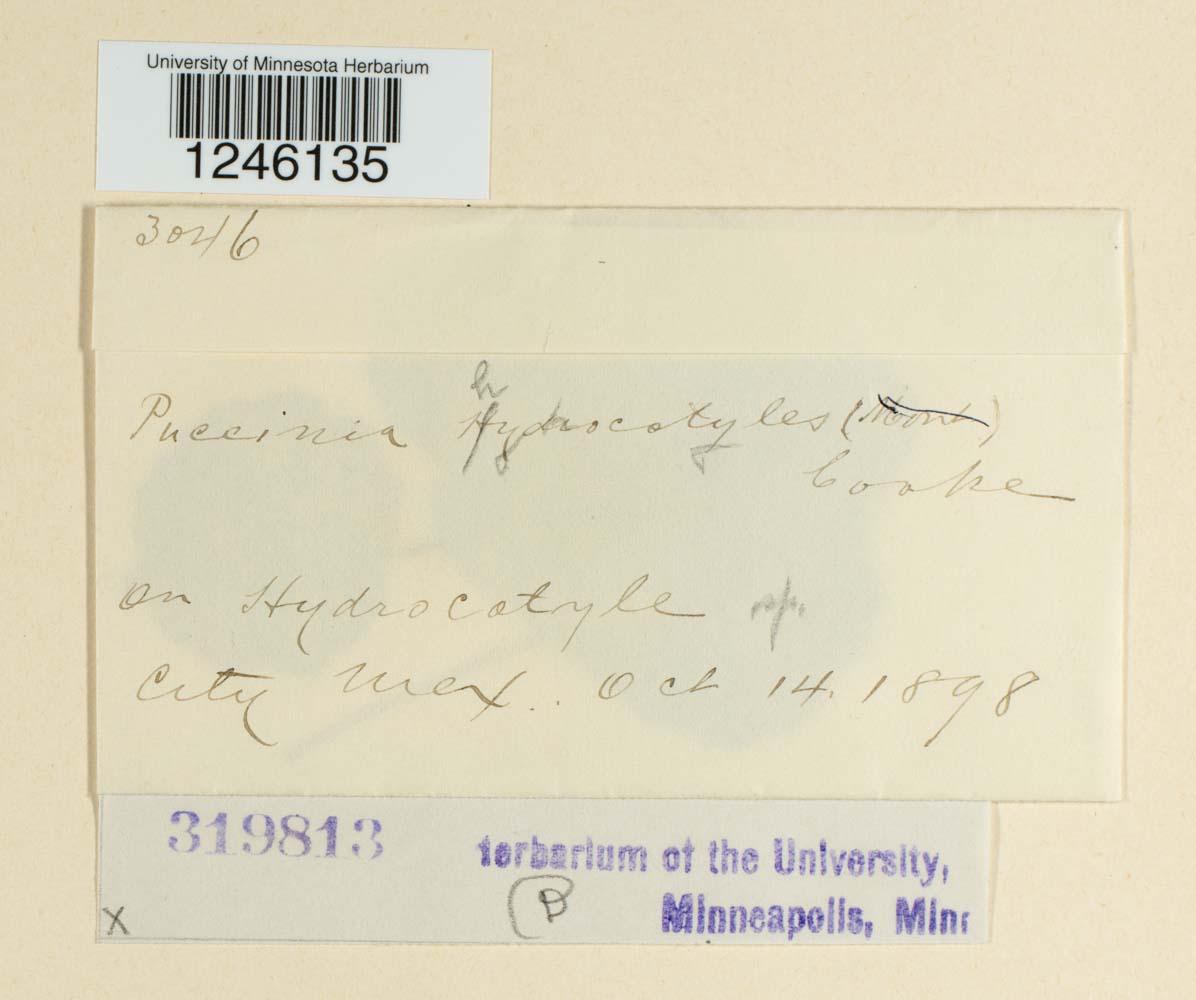 University of Minnesota Herbarium
1246135
3046
Puccinia hydrocotyles (Mont)
Cooke
on Hydrocotyle sp.
City Mex. Oct 14. 1898
319813
Herbarium of the University,
B
Minneapolis, Minn
X